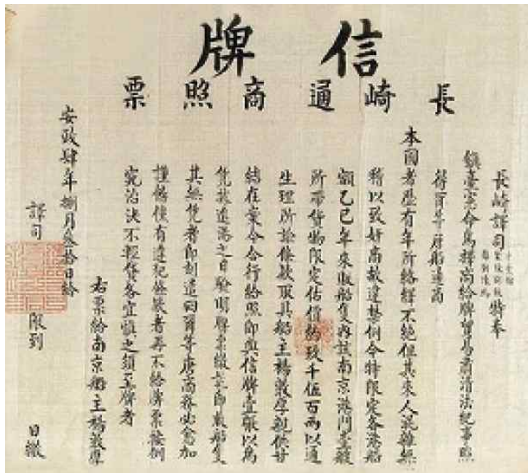 信牌
長崎通商照票
長崎譯司 特奉
鎮臺憲命為擇商給牌貿易肅清法紀事照
得爾等唐船通商
本國者歷有年所絡繹不絕但其來人混雜無
稽以致奸商故違禁例今特限定各港船
額乙巳年來販船隻內該南京港門壹艘
所帶貨物限定估價約玖千伍百兩以通
生理所諭條款取具船主楊敦厚親供甘
結在案今合行給照即與信牌壹張以為
凭據進港之日驗明牌票繳訖即收船隻
其無凭者即刻遣回爾等唐商務必愈加
謹飭倘有違犯條款者再不給牌票按例
究治決不輕貸各宜慎之須至牌者
右票給南京船主楊敦厚
安政肆年捌月叁拾日給
譯司 限到 日繳